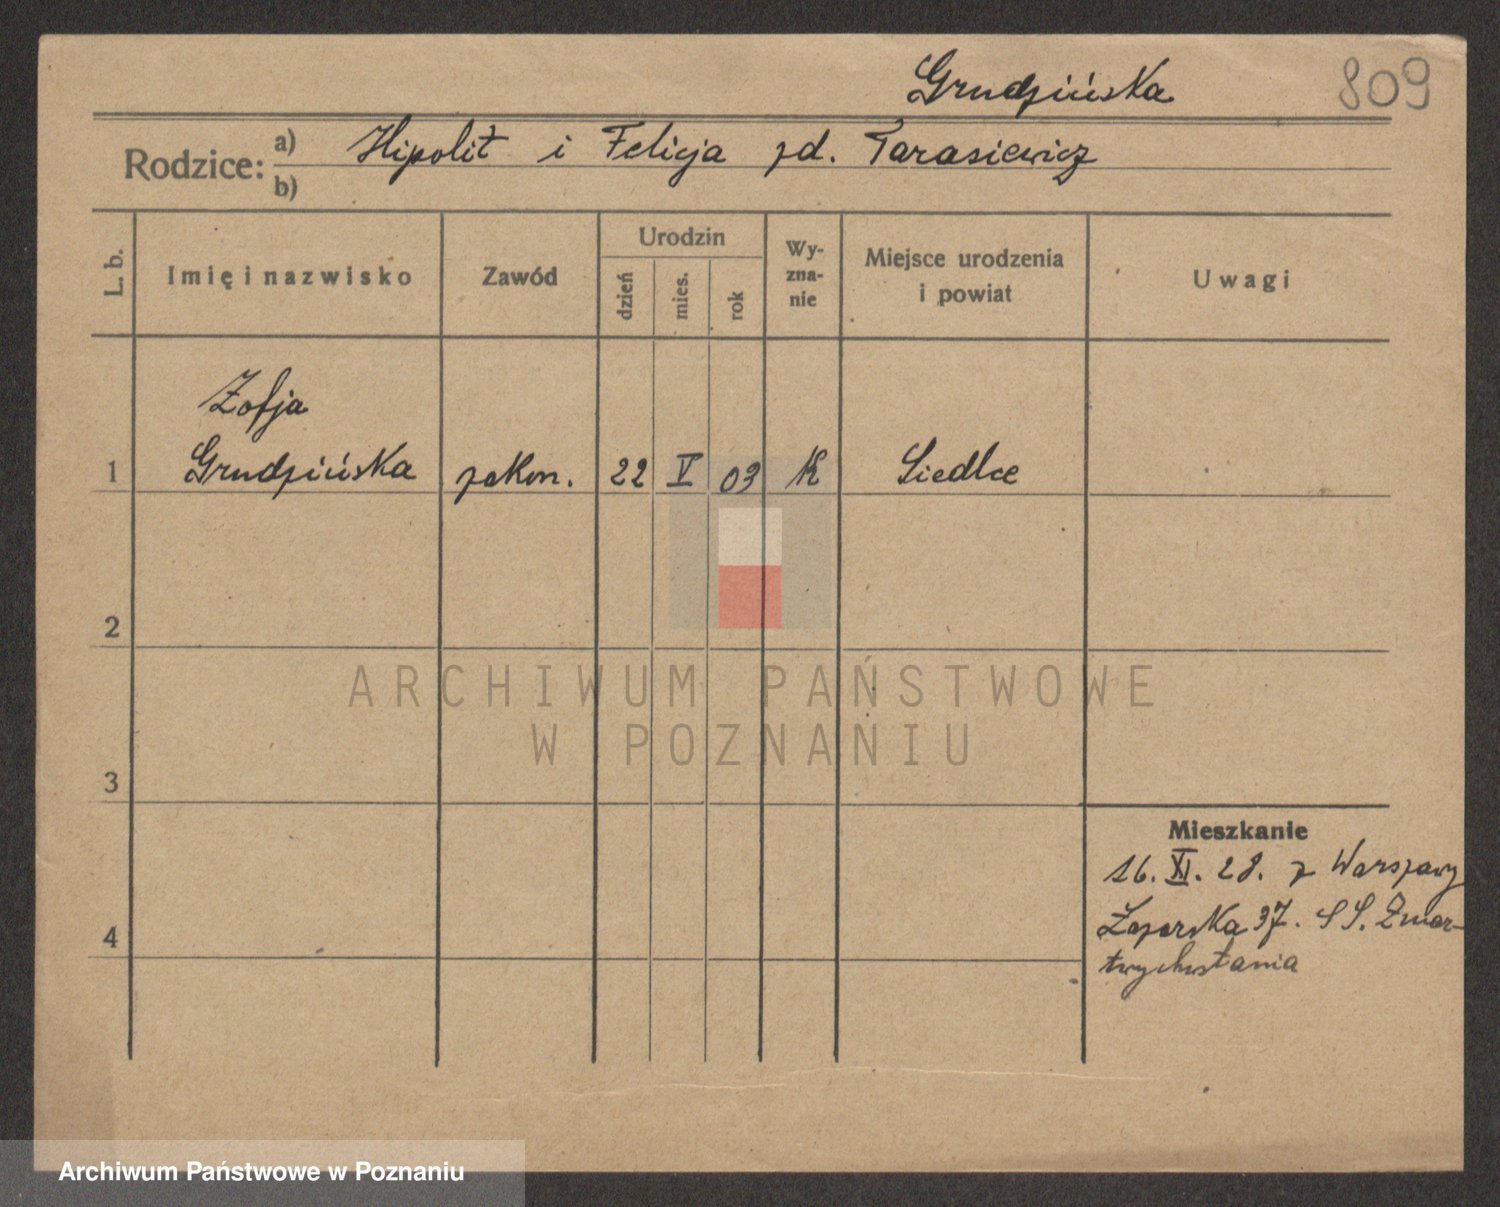 Grudzińska 809
Rodzice: a) Hipolit i Felicja zd. Tarasiewicz
b)
L. b. Imię i nazwisko Zawód Urodzin dzień mies. rok Wyzna-nie Miejsce urodzenia i powiat Uwagi
Zofja
1 Grudzińska zakon. 22 V 03 K Siedlce
2
ARCHIWUM PAŃSTWOWE
W POZNANIU
3
Mieszkanie
16. XI. 28. z Warszawy
4 37. SS. Zmar-
twychwstania
Archiwum Państwowe w Poznaniu